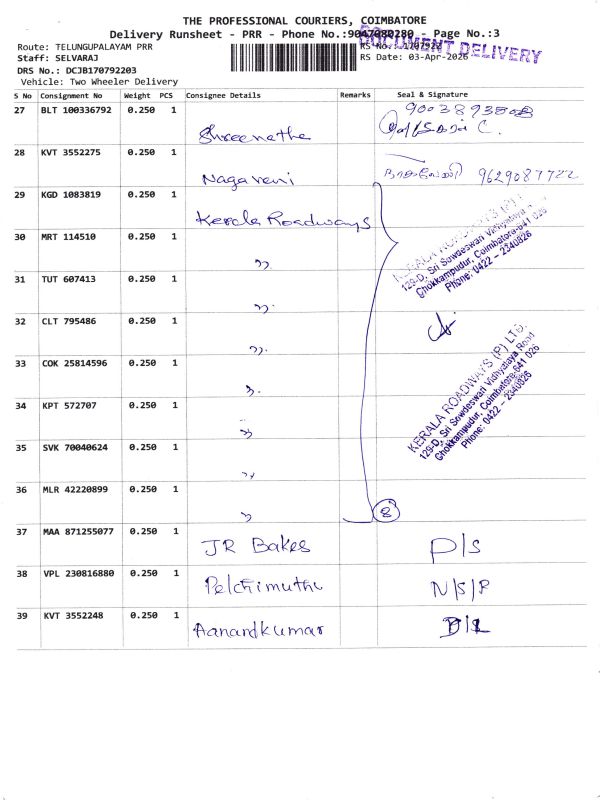 THE PROFESSIONAL COURIERS, COIMBATORE
Delivery Runsheet - PRR - Phone No.:9047080280 - Page No.:3
DOCUMENT DELIVERY
Route: TELUNGUPALAYAM PRR
RS No.: 1707922
Staff: SELVARAJ
RS Date: 03-Apr-2026
DRS No.: DCJB170792203
Vehicle: Two Wheeler Delivery
S No Consignment No Weight PCS Consignee Details Remarks Seal & Signature
27 BLT 100336792 0.250 1 Shreenatha
28 KVT 3552275 0.250 1 Nagaveni 9629087722
29 KGD 1083819 0.250 1 Kerala Roadways
KERALA ROADWAYS (P) LTD.
129-D, Sri Sowdeswari Vidhyalaya Road
Chokkampudur, Coimbatore-641 026
Phone: 0422 - 2340826
30 MRT 114510 0.250 1 ”
31 TUT 607413 0.250 1 ”
32 CLT 795486 0.250 1 ”
33 COK 25814596 0.250 1 ”
KERALA ROADWAYS (P) LTD.
129-D, Sri Sowdeswari Vidhyalaya Road
Chokkampudur, Coimbatore-641 026
Phone: 0422 - 2340826
34 KPT 572707 0.250 1 ”
35 SVK 70040624 0.250 1 ”
36 MLR 42220899 0.250 1 ” 8
37 MAA 871255077 0.250 1 JR Bakes P/S
38 VPL 230816880 0.250 1 Petchimuthu N/S/P
39 KVT 3552248 0.250 1 Aanandkumar D/L